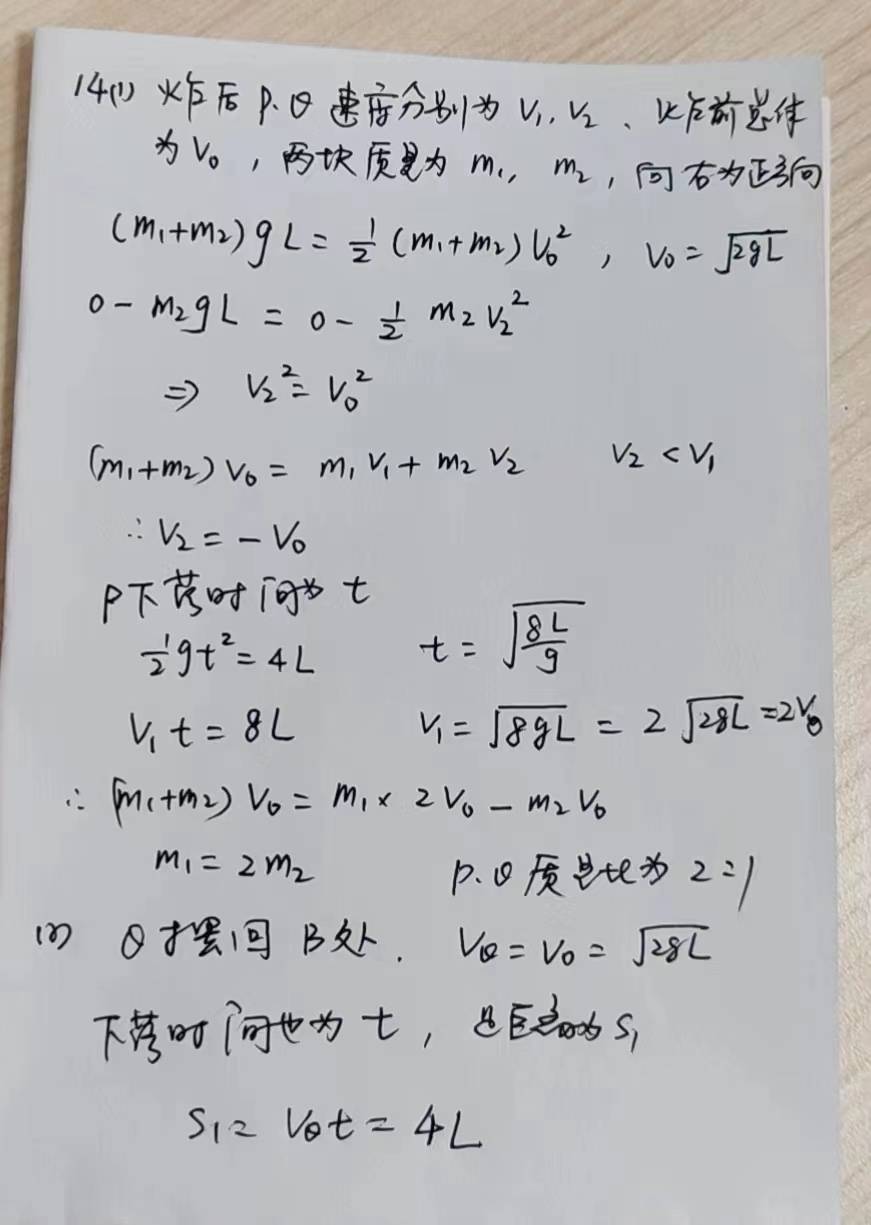 14(1) 炸后 P.Q 速度分别为 V₁, V₂、炸前总体
为 V₀，两块质量为 m₁, m₂，向右为正方向
(m₁+m₂)gL = ½(m₁+m₂)V₀², V₀ = √2gL
0 - m₂gL = 0 - ½ m₂V₂²
⇒ V₂² = V₀²
(m₁+m₂)V₀ = m₁V₁ + m₂V₂ V₂ < V₁
∴ V₂ = -V₀
P下落时间为 t
½gt² = 4L t = √(8L/g)
V₁t = 8L V₁ = √8gL = 2√2gL = 2V₀
∴ (m₁+m₂)V₀ = m₁ × 2V₀ - m₂V₀
m₁ = 2m₂ P.Q 质量比为 2:1
(2) Q才摆回 B处. V_Q = V₀ = √2gL
下落时间也为 t，距离为 S₁
S₁ = V_Q t = 4L